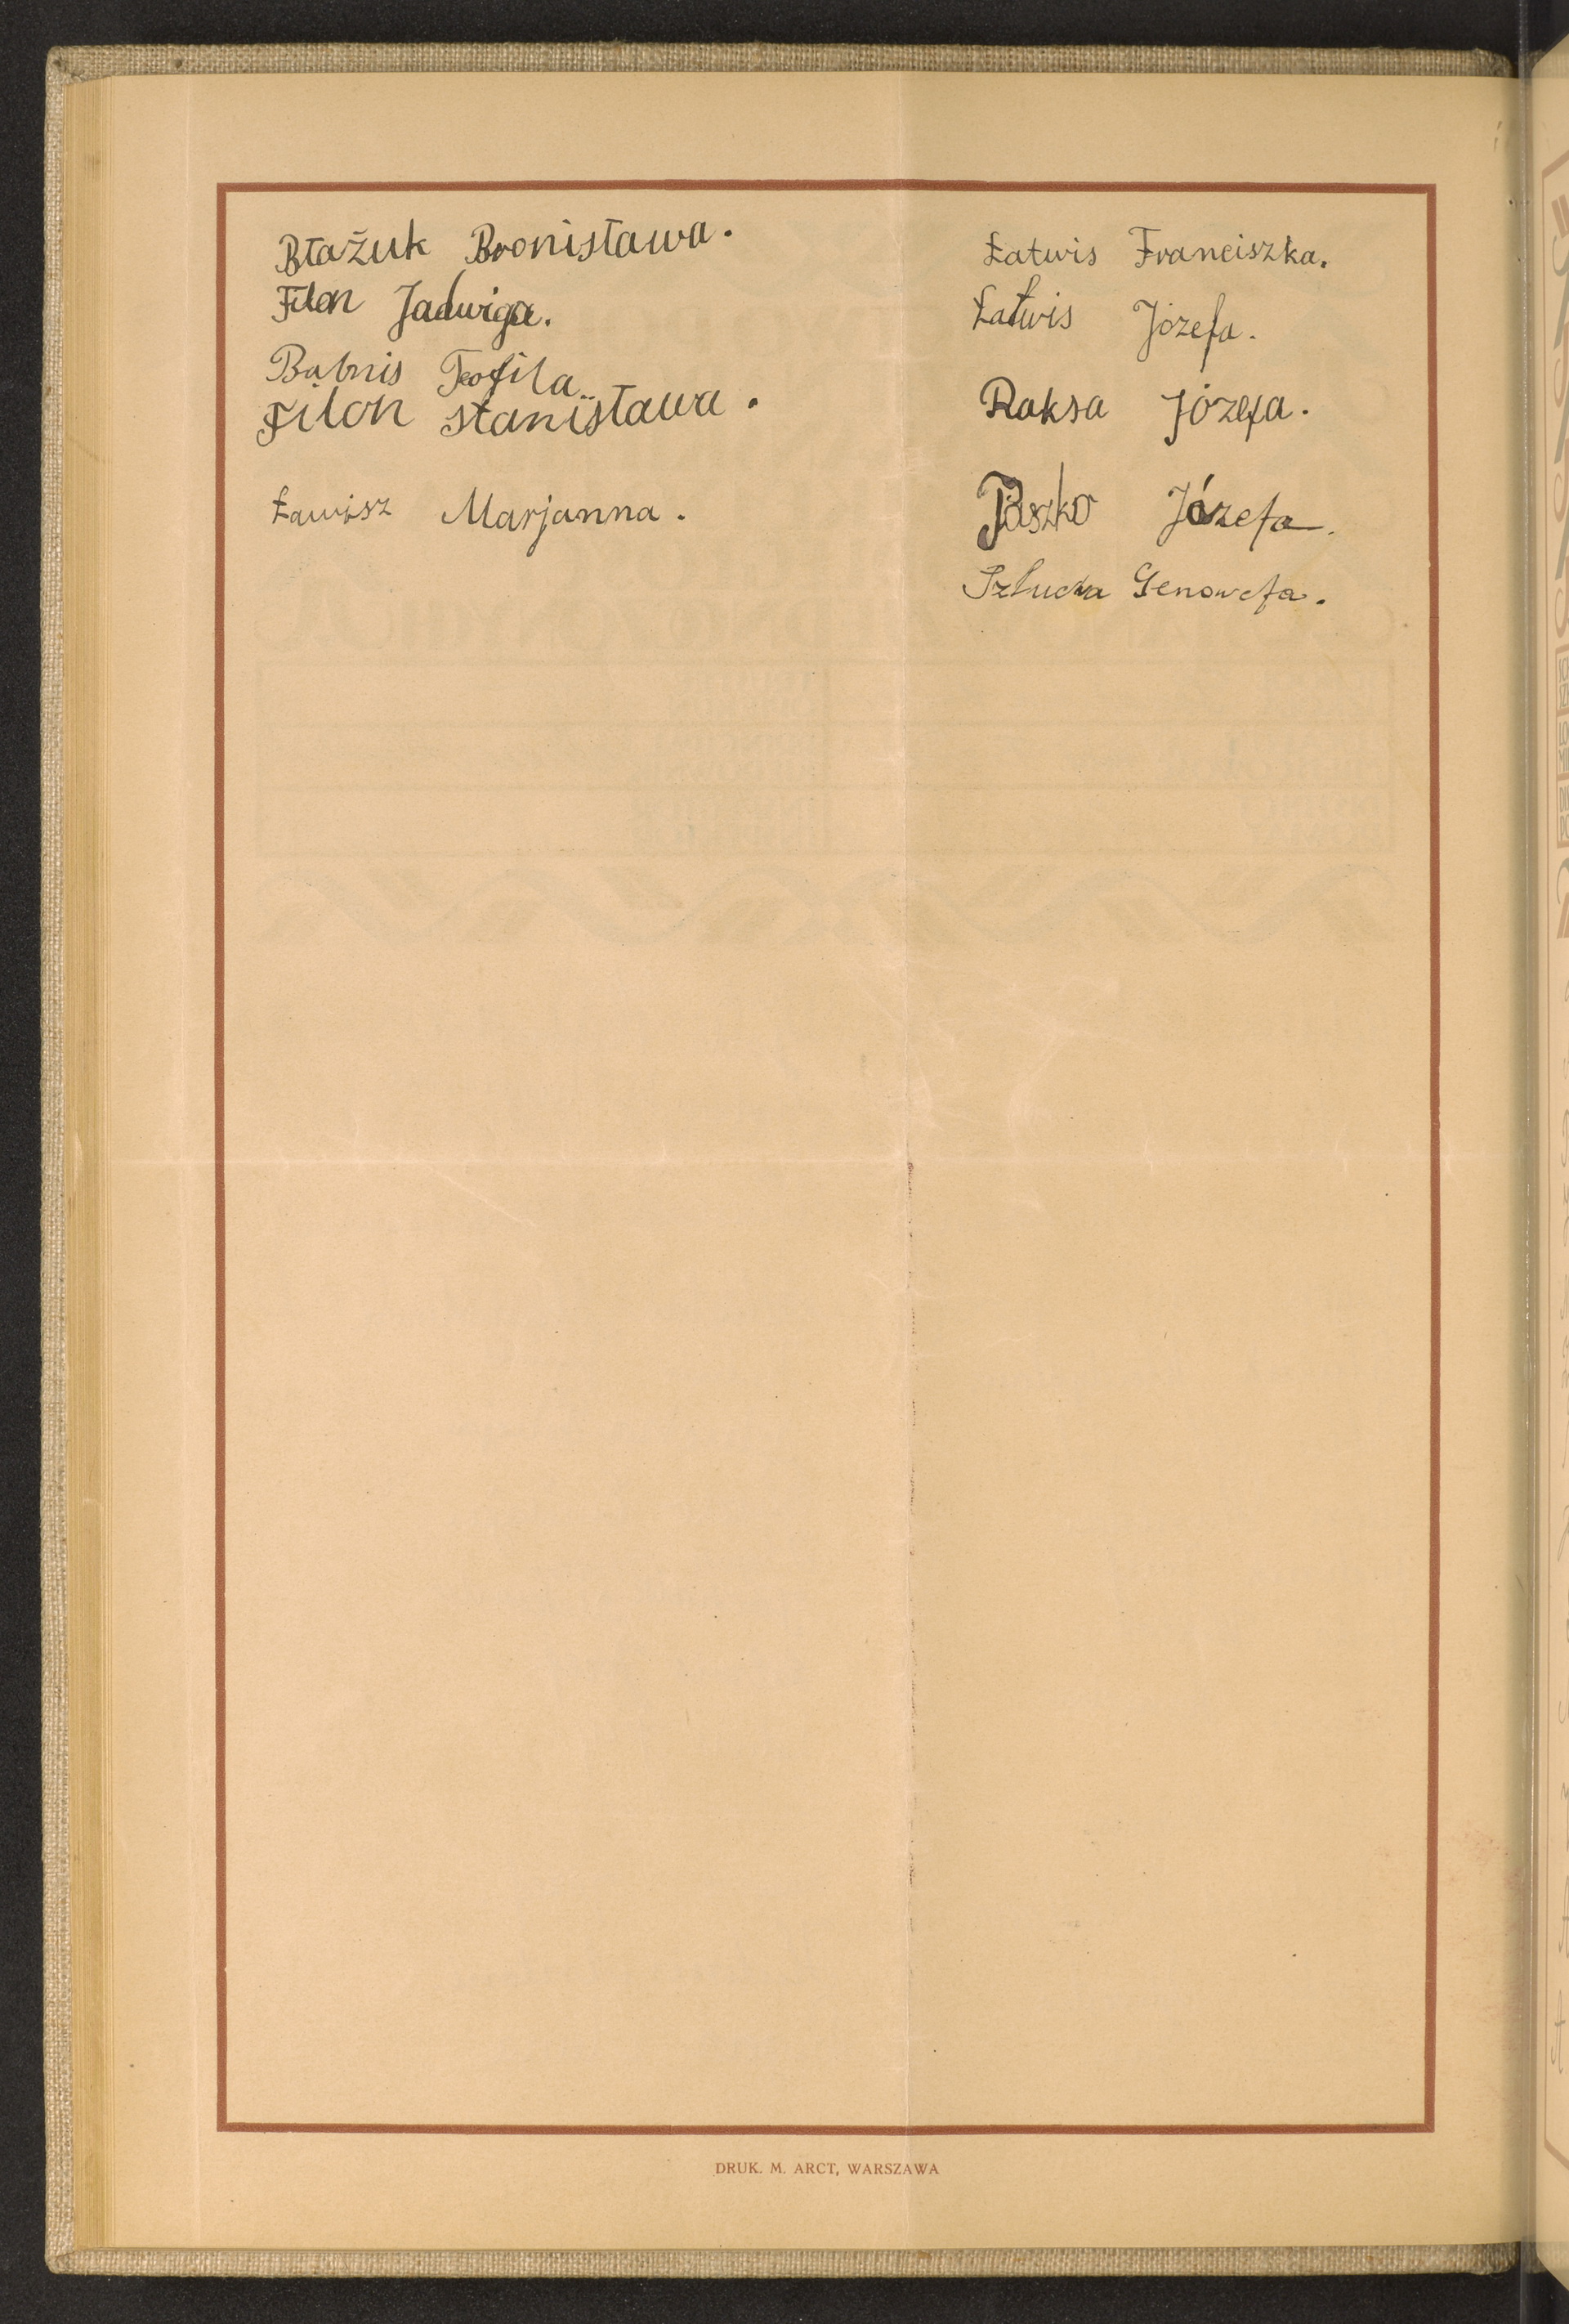 Błażuk Bronisława.
Filon Jadwiga.
Babnis Teofila
Filon Stanisława.
Ławisz Marjanna.
Łatwis Franciszka.
Łatwis Józefa.
Raksa Józefa.
Paszko Józefa.
Genowefa.
DRUK. M. ARCT, WARSZAWA